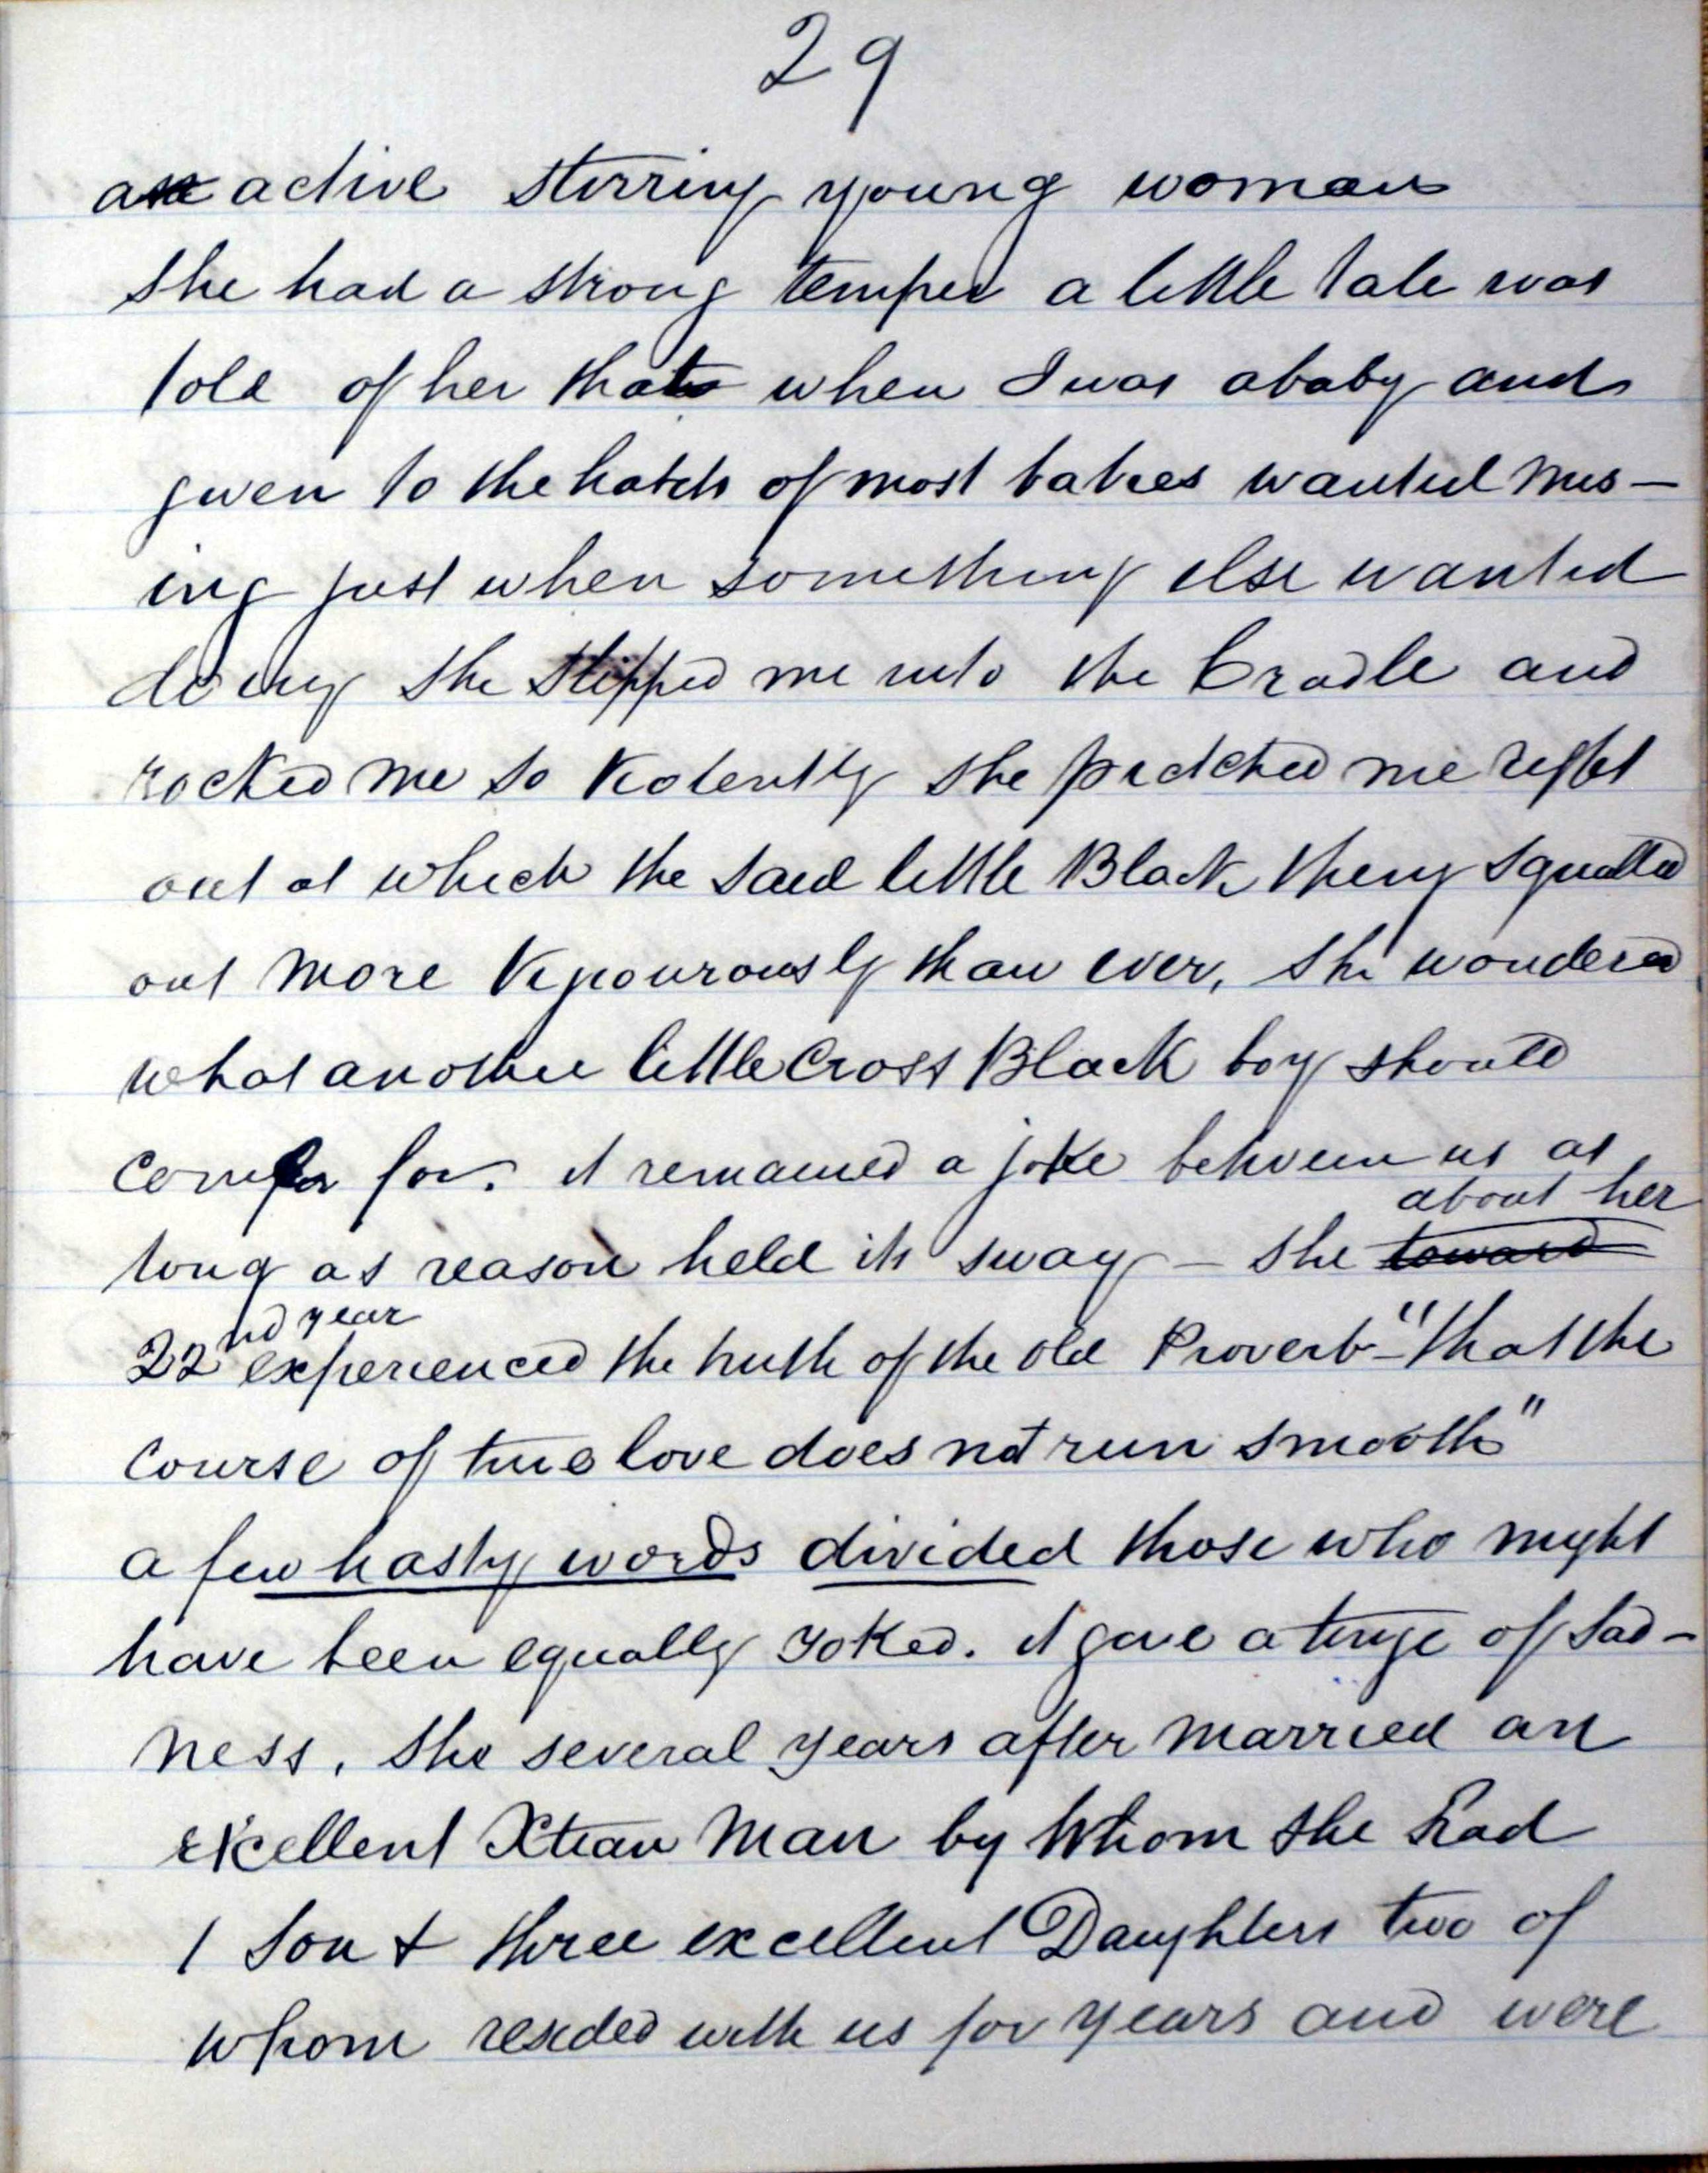 29
an active stirring young woman
she had a strong temper a little tale was
told of her that when I was a baby and
given to the habits of most babies wanted nurs-
ing just when something else wanted
doing she slipped me into the Cradle and
rocked me so violently she pitched me right
out at which the said little Black thing squalled
out more Vigourously than ever, she wondered
what another little Cross Black boy should
come for. it remained a joke between us as
long as reason held its sway - she toward about her
22nd year experienced the truth of the old Proverb - "that the
Course of true love does not run smooth"
a few hasty words divided those who might
have been equally yoked. it gave a tinge of sad-
ness. she several years after married an
excellent Xtian Man by Whom she had
1 Son + three excellent Daughters two of
whom resided with us for years and were